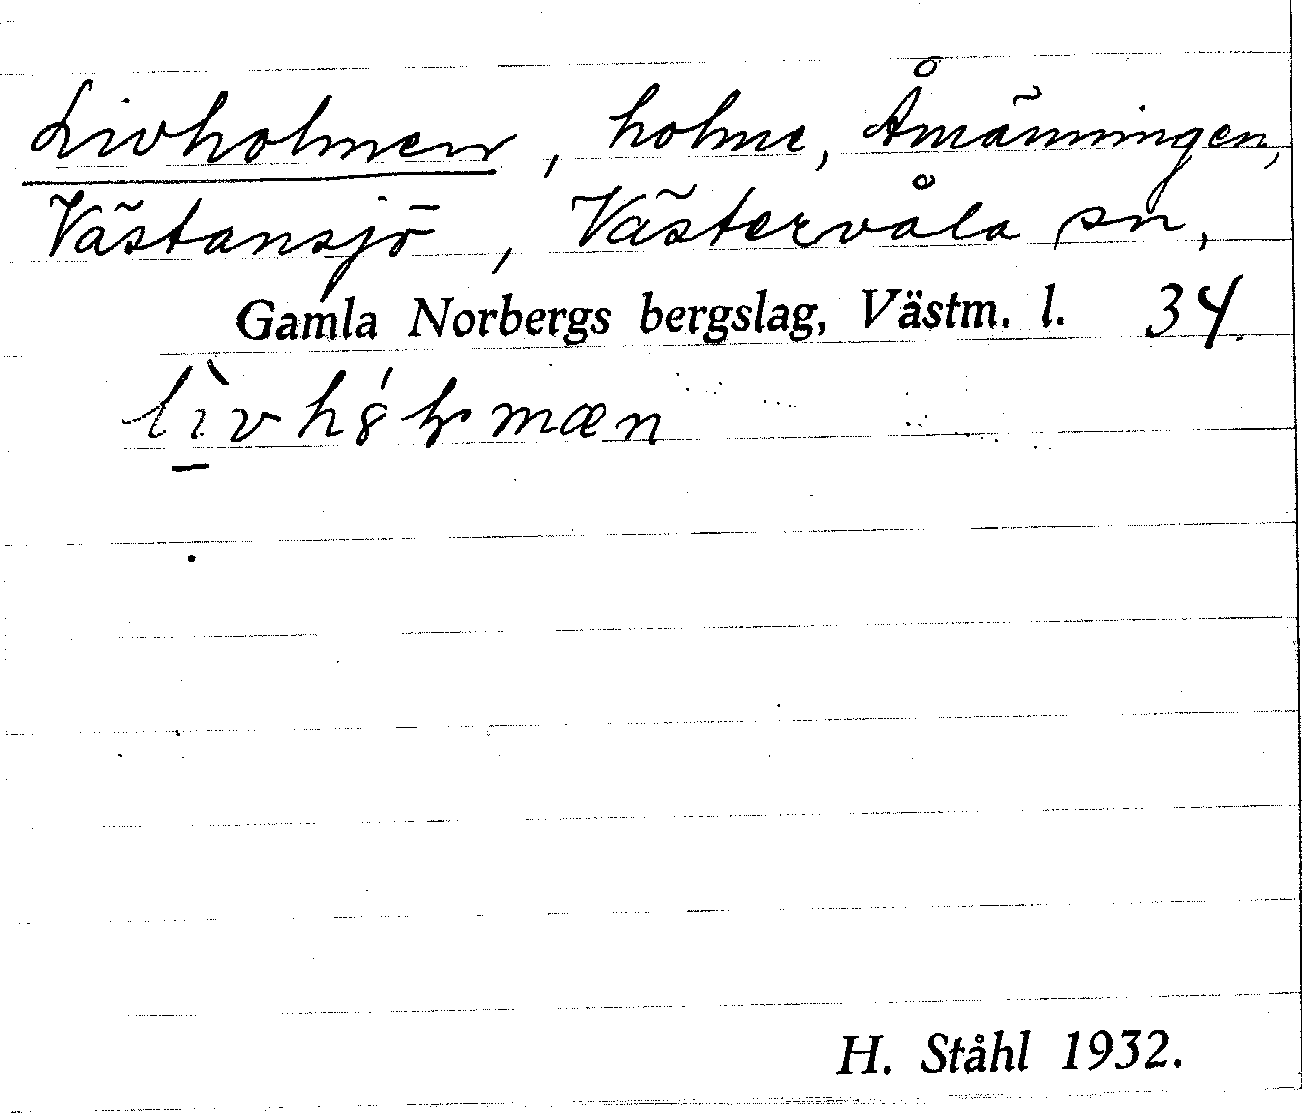 Livholmen, holme, Åmänningen,
Västansjö, Västervåla sn,
Gamla Norbergs bergslag, Västm. l. 34.
H. Ståhl 1932.